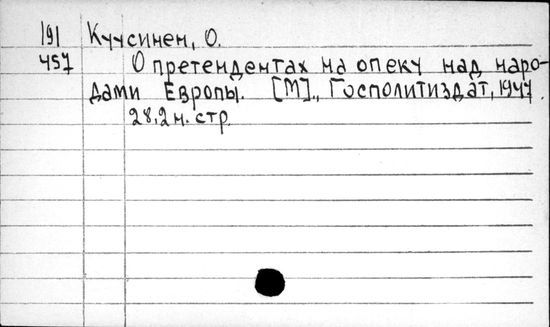 191 Куусинен, О.
457 О претендентах на опеку над наро-
дами Европы. [М]., Госполитиздат, 1947.
28,2 н. стр.